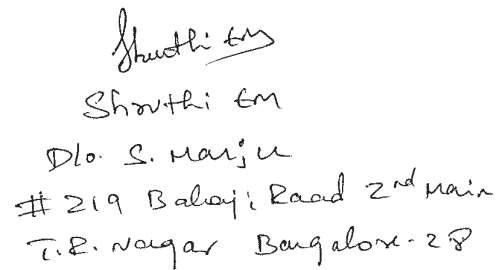 Shruthi EM
Shruthi EM
D/o. S. Manju
# 219 Balaji Raad 2nd Main
T.R. Nagar Bangalore-28